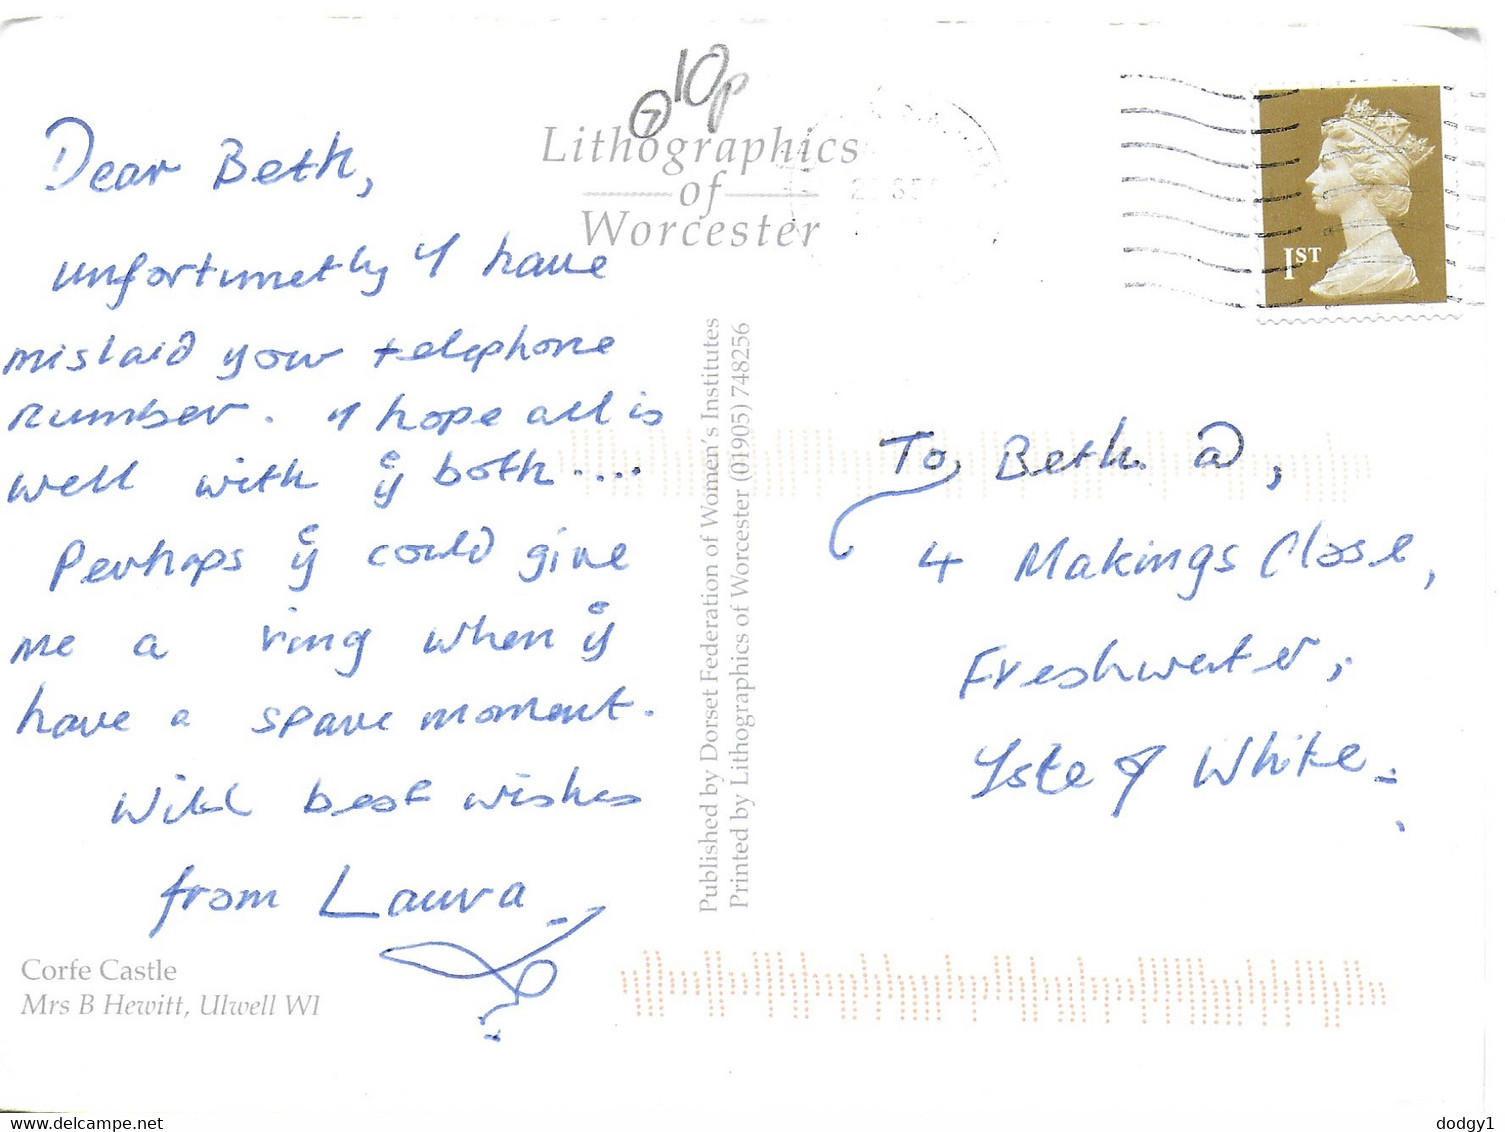 ⑦ 10p
Lithographics
of
Worcester
1ST
Dear Beth,
unfortunetly I have
mislaid your telephone
number. I hope all is
well with ẙ both ....
Perhaps ẙ could give
me a ring when ẙ
have a spare moment.
With best wishes
from Laura
Corfe Castle
Mrs B Hewitt, Ulwell WI
Published by Dorset Federation of Women's Institutes
Printed by Lithographics of Worcester (01905) 748256
To, Beth @,
4 Makings Close,
Freshwater,
Isle of White.
delcampe.net
dodgy1